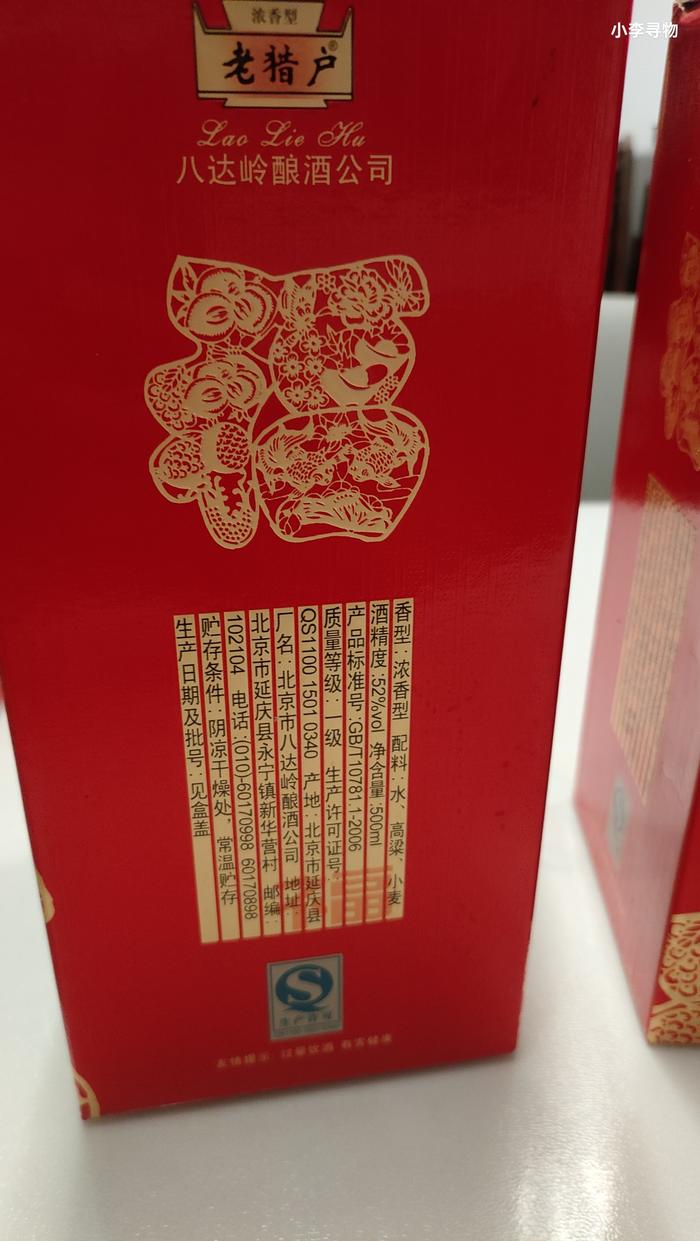 小李寻物
浓香型
老猎户®
Lao Lie Hu
八达岭酿酒公司
香型:浓香型 配料:水、高粱、小麦
酒精度:52%vol 净含量:500ml
产品标准号:GB/T10781.1-2006
质量等级:一级 生产许可证号:
QS1100 1501 0340 产地:北京市延庆县
厂名:北京市八达岭酿酒公司 地址:
北京市延庆县永宁镇新华营村 邮编:
102104 电话:(010)-60170998 60170898
贮存条件:阴凉干燥处,常温贮存
生产日期及批号:见盒盖
生产许可
友情提示:过量饮酒 有害健康